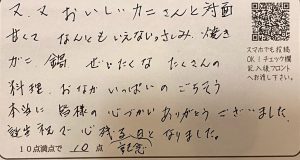 又、又おいしいカニさんと対面
甘くて なんともいえないさしみ、焼き
がに、鍋 ぜいたくな たくさんの
料理、おなかいっぱいのごちそう
本当に 皆様の心づかいありがとうございました。
誕生祝で心残る
となりました。
10点満点で 10 点
スマホでも投稿
OK！チェック欄
記入後フロント
へお渡し下さい。